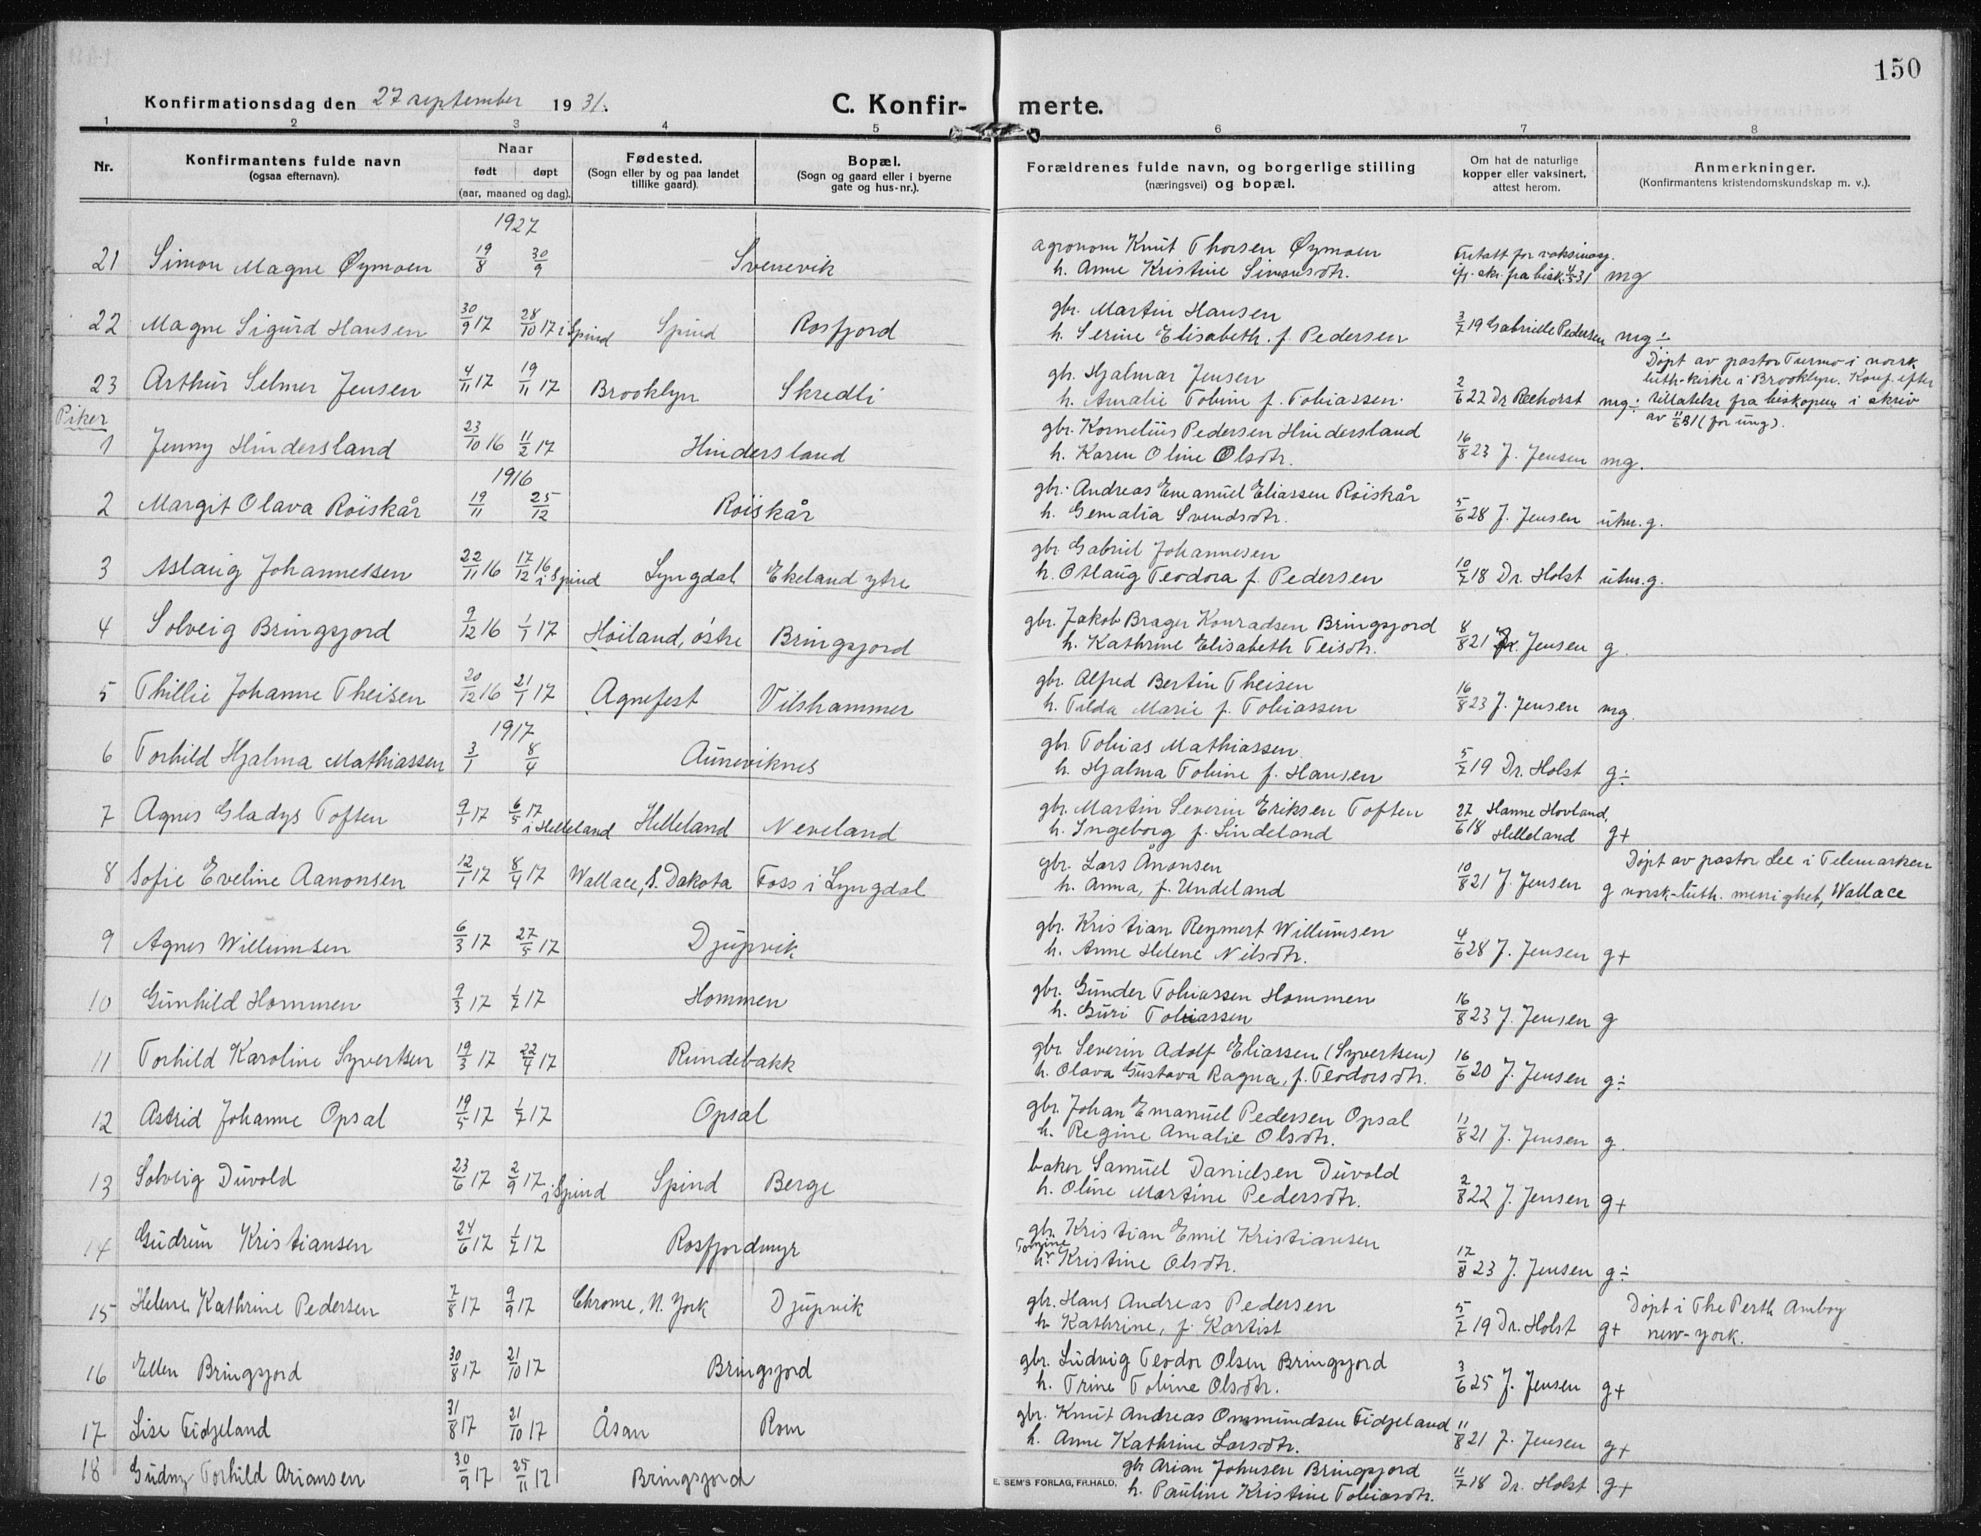 150
Konfirmationsdag den 27 september 1931.
C. Konfirmerte.
1 2 3 4 5 6 7 8
Nr. Konfirmantens fulde navn (ogsaa efternavn). Naar født døpt (aar, maaned og dag). Fødested. (Sogn eller by og paa landet tillike gaard). Bopæl. (Sogn og gaard eller i byerne gate og hus-nr.). Forældrenes fulde navn, og borgerlige stilling (næringsvei) og bopæl. Om hat de naturlige kopper eller vaksinert, attest herom. Anmerkninger. (Konfirmantens kristendomskundskap m. v.).
1927
21 Simon Magne Øymoen 19/8 30/9 Svenevik agronom Knut Thorsen Øymoen
h. Anne Kristine Simonsdtr. Fritatt for vaksinasj. ifl. skr. fra bisk. 4/5 31 mg
22 Magne Sigurd Hansen 30/9 17 28/10 17 i Spind Spind Rosfjord gbr. Martin Hansen
h. Serine Elisabeth f. Pedersen 3/7 19 Gabrielle Pedersen mg÷
23 Arthur Selmer Jensen 4/11 17 19/11 17 Brooklyn Skredli gb. Hjalmar Jensen
h. Amalie Tobine f. Tobiassen. 2/6 22 Dr Reehorst mg÷ Døpt av pastor Turmo i norsk luth-kirke i Brooklyn. Konf. efter tillatelse fra biskopen i skriv av 11/6 31 (for ung).
Piker
1 Jenny Hindersland 23/10 16 11/2 17 Hindersland gbr. Kornelius Pedersen Hindersland
h. Karen Oline Olsdtr. 16/8 23 J. Jensen mg.
1916
2 Margit Olava Röiskår 19/11 25/12 Röiskår gbr. Andreas Emanuel Eliassen Röiskår
h. Gemalia Svendsdtr. 5/6 28 J. Jensen utm.g.
3 Aslaug Johannessen 22/11 16 17/12 16 i Spind Lyngdal Ekeland ytre gbr. Gabriel Johannesen
h. Otlaug Teodora f. Pedersen 10/7 18 Dr. Holst utm.g.
4 Solveig Bringsjord 9/12 16 1/1 17 Høiland, østre Bringsjord gbr. Jakob Brager Konradsen Bringsjord
h. Kathrine Elisabeth Teisdtr. 8/8 21 J. Jensen g.
5 Thillie Johanne Theisen 20/12 16 21/1 17 Agnefest Vilshammer gbr. Alfred Bertin Theisen
h. Tilda Marie f. Tobiassen 16/8 23 J. Jensen mg.
1917
6 Torhild Hjalma Mathiassen 3/1 8/4 Auneviknes gbr. Tobias Mathiassen
h. Hjalma Tobine f. Hansen 5/7 19 Dr. Holst g÷
7 Agnes Gladys Toften 9/1 17 6/5 17 i Helleland Helleland Neveland gbr. Martin Severin Eriksen Toften
h. Ingeborg f. Lindeland 27/6 18 Hanne Hovland, Helleland g+
8 Sofie Eveline Aanonsen 12/1 17 8/4 17 Wallace, S. Dakota Foss i Lyngdal gbr. Lars Ånonsen
h. Anna, f. Undeland 10/8 21 J. Jensen g Døpt av pastor Lee i Telemarken norsk-luth. menighet, Wallace
9 Agnes Willumsen 6/3 17 27/5 17 Djupvik gbr. Kristian Reymert Willumsen
h. Anne Helene Nilsdtr. 4/6 28 J. Jensen g+
10 Gunhild Hommen 9/3 17 1/7 17 Hommen gbr. Gunder Tobiassen Hommen
h. Guri Tobiassen 16/8 23 J. Jensen g
11 Torhild Karoline Syvertsen 19/3 17 22/4 17 Rundebakk gbr. Severin Adolf Eliassen (Syvertsen)
h. Olava Gustava Ragna, f. Teodorsdtr. 16/6 20 J. Jensen g÷
12 Astrid Johanne Opsal 19/5 17 1/7 17 Opsal gbr. Johan Emanuel Pedersen Opsal
h. Regine Amalie Olsdtr. 11/8 21 J. Jensen g.
13 Solveig Duvold 23/6 17 2/9 17 i Spind Spind Berge baker Samuel Danielsen Duvold
h. Oline Martine Pedersdtr. 2/8 22 J. Jensen g+
14 Gudrun Kristiansen 24/6 17 1/7 17 Rosfjordmyr gbr. Kristian Emil Kristiansen
h. Tomine Kristine Olsdtr. 17/8 23 J. Jensen g÷
15 Helene Kathrine Pedersen 7/8 17 9/9 17 Chrome, N. York Djupvik gbr. Hans Andreas Pedersen
h. Kathrine, f. Kartist 5/7 19 Dr. Holst g+ Døpt i The Perth Amboy new-york.
16 Ellen Bringsjord 30/8 17 21/10 17 Bringsjord gbr. Ludvig Teodor Olsen Bringsjord
h. Trine Tobine Olsdtr. 3/6 25 J. Jensen g+
17 Lise Fidjeland 31/8 17 21/10 17 Åsan Rom gbr. Knut Andreas Ommundsen Fidjeland
h. Anne Kathrine Larsdtr. 11/8 21 J. Jensen g+
18 Gudny Torhild Ariansen 30/9 17 25/11 17 Bringsjord gbr Arian Johnsen Bringsjord
h. Pauline Kristine Tobiasdtr. 11/7 18 Dr. Holst g+
E. SEM'S FORLAG, FR.HALD.